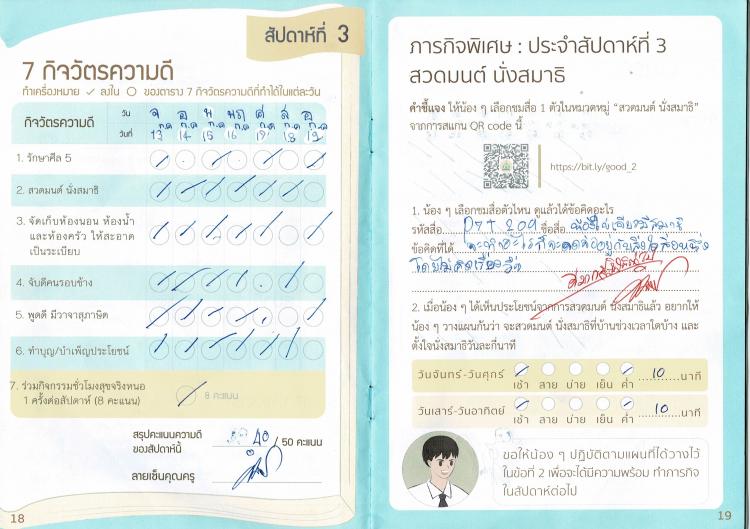 สัปดาห์ที่ 3
7 กิจวัตรความดี
ทำเครื่องหมาย ✓ ลงใน ○ ของตาราง 7 กิจวัตรความดีที่ทำได้ในแต่ละวัน
กิจวัตรความดี วัน จ อ พ พฤ ศ ส อ
วันที่ 13 ก.ค 14 ก.ค 15 ก.ค 16 ก.ค ก.ค ก.ค ก.ค
1. รักษาศีล 5
2. สวดมนต์ นั่งสมาธิ
3. จัดเก็บห้องนอน ห้องน้ำ
และห้องครัว ให้สะอาด
เป็นระเบียบ
4. จับดีคนรอบข้าง
5. พูดดี มีวาจาสุภาษิต
6. ทำบุญ/บำเพ็ญประโยชน์
7. ร่วมกิจกรรมชั่วโมงสุขจริงหนอ
1 ครั้งต่อสัปดาห์ (8 คะแนน)
8 คะแนน
สรุปคะแนนความดี
ของสัปดาห์นี้ 40 / 50 คะแนน
ลายเซ็นคุณครู
18
ภารกิจพิเศษ : ประจำสัปดาห์ที่ 3
สวดมนต์ นั่งสมาธิ
คำชี้แจง ให้น้อง ๆ เลือกชมสื่อ 1 ตัวในหมวดหมู่ “สวดมนต์ นั่งสมาธิ”
จากการสแกน QR code นี้
https://bit.ly/good_2
1. น้อง ๆ เลือกชมสื่อตัวไหน ดูแล้วได้ข้อคิดอะไร
รหัสสื่อ 209 ชื่อสื่อ
ข้อคิดที่ได้
2. เมื่อน้อง ๆ ได้เห็นประโยชน์จากการสวดมนต์ นั่งสมาธิแล้ว อยากให้
น้อง ๆ วางแผนกันว่า จะสวดมนต์ นั่งสมาธิที่บ้านช่วงเวลาใดบ้าง และ
ตั้งใจนั่งสมาธิวันละกี่นาที
วันจันทร์-วันศุกร์ เช้า สาย บ่าย เย็น ค่ำ 10 นาที
วันเสาร์-วันอาทิตย์ เช้า สาย บ่าย เย็น ค่ำ 10 นาที
ขอให้น้อง ๆ ปฏิบัติตามแผนที่ได้วางไว้
ในข้อที่ 2 เพื่อจะได้มีความพร้อม ทำภารกิจ
ในสัปดาห์ต่อไป
19